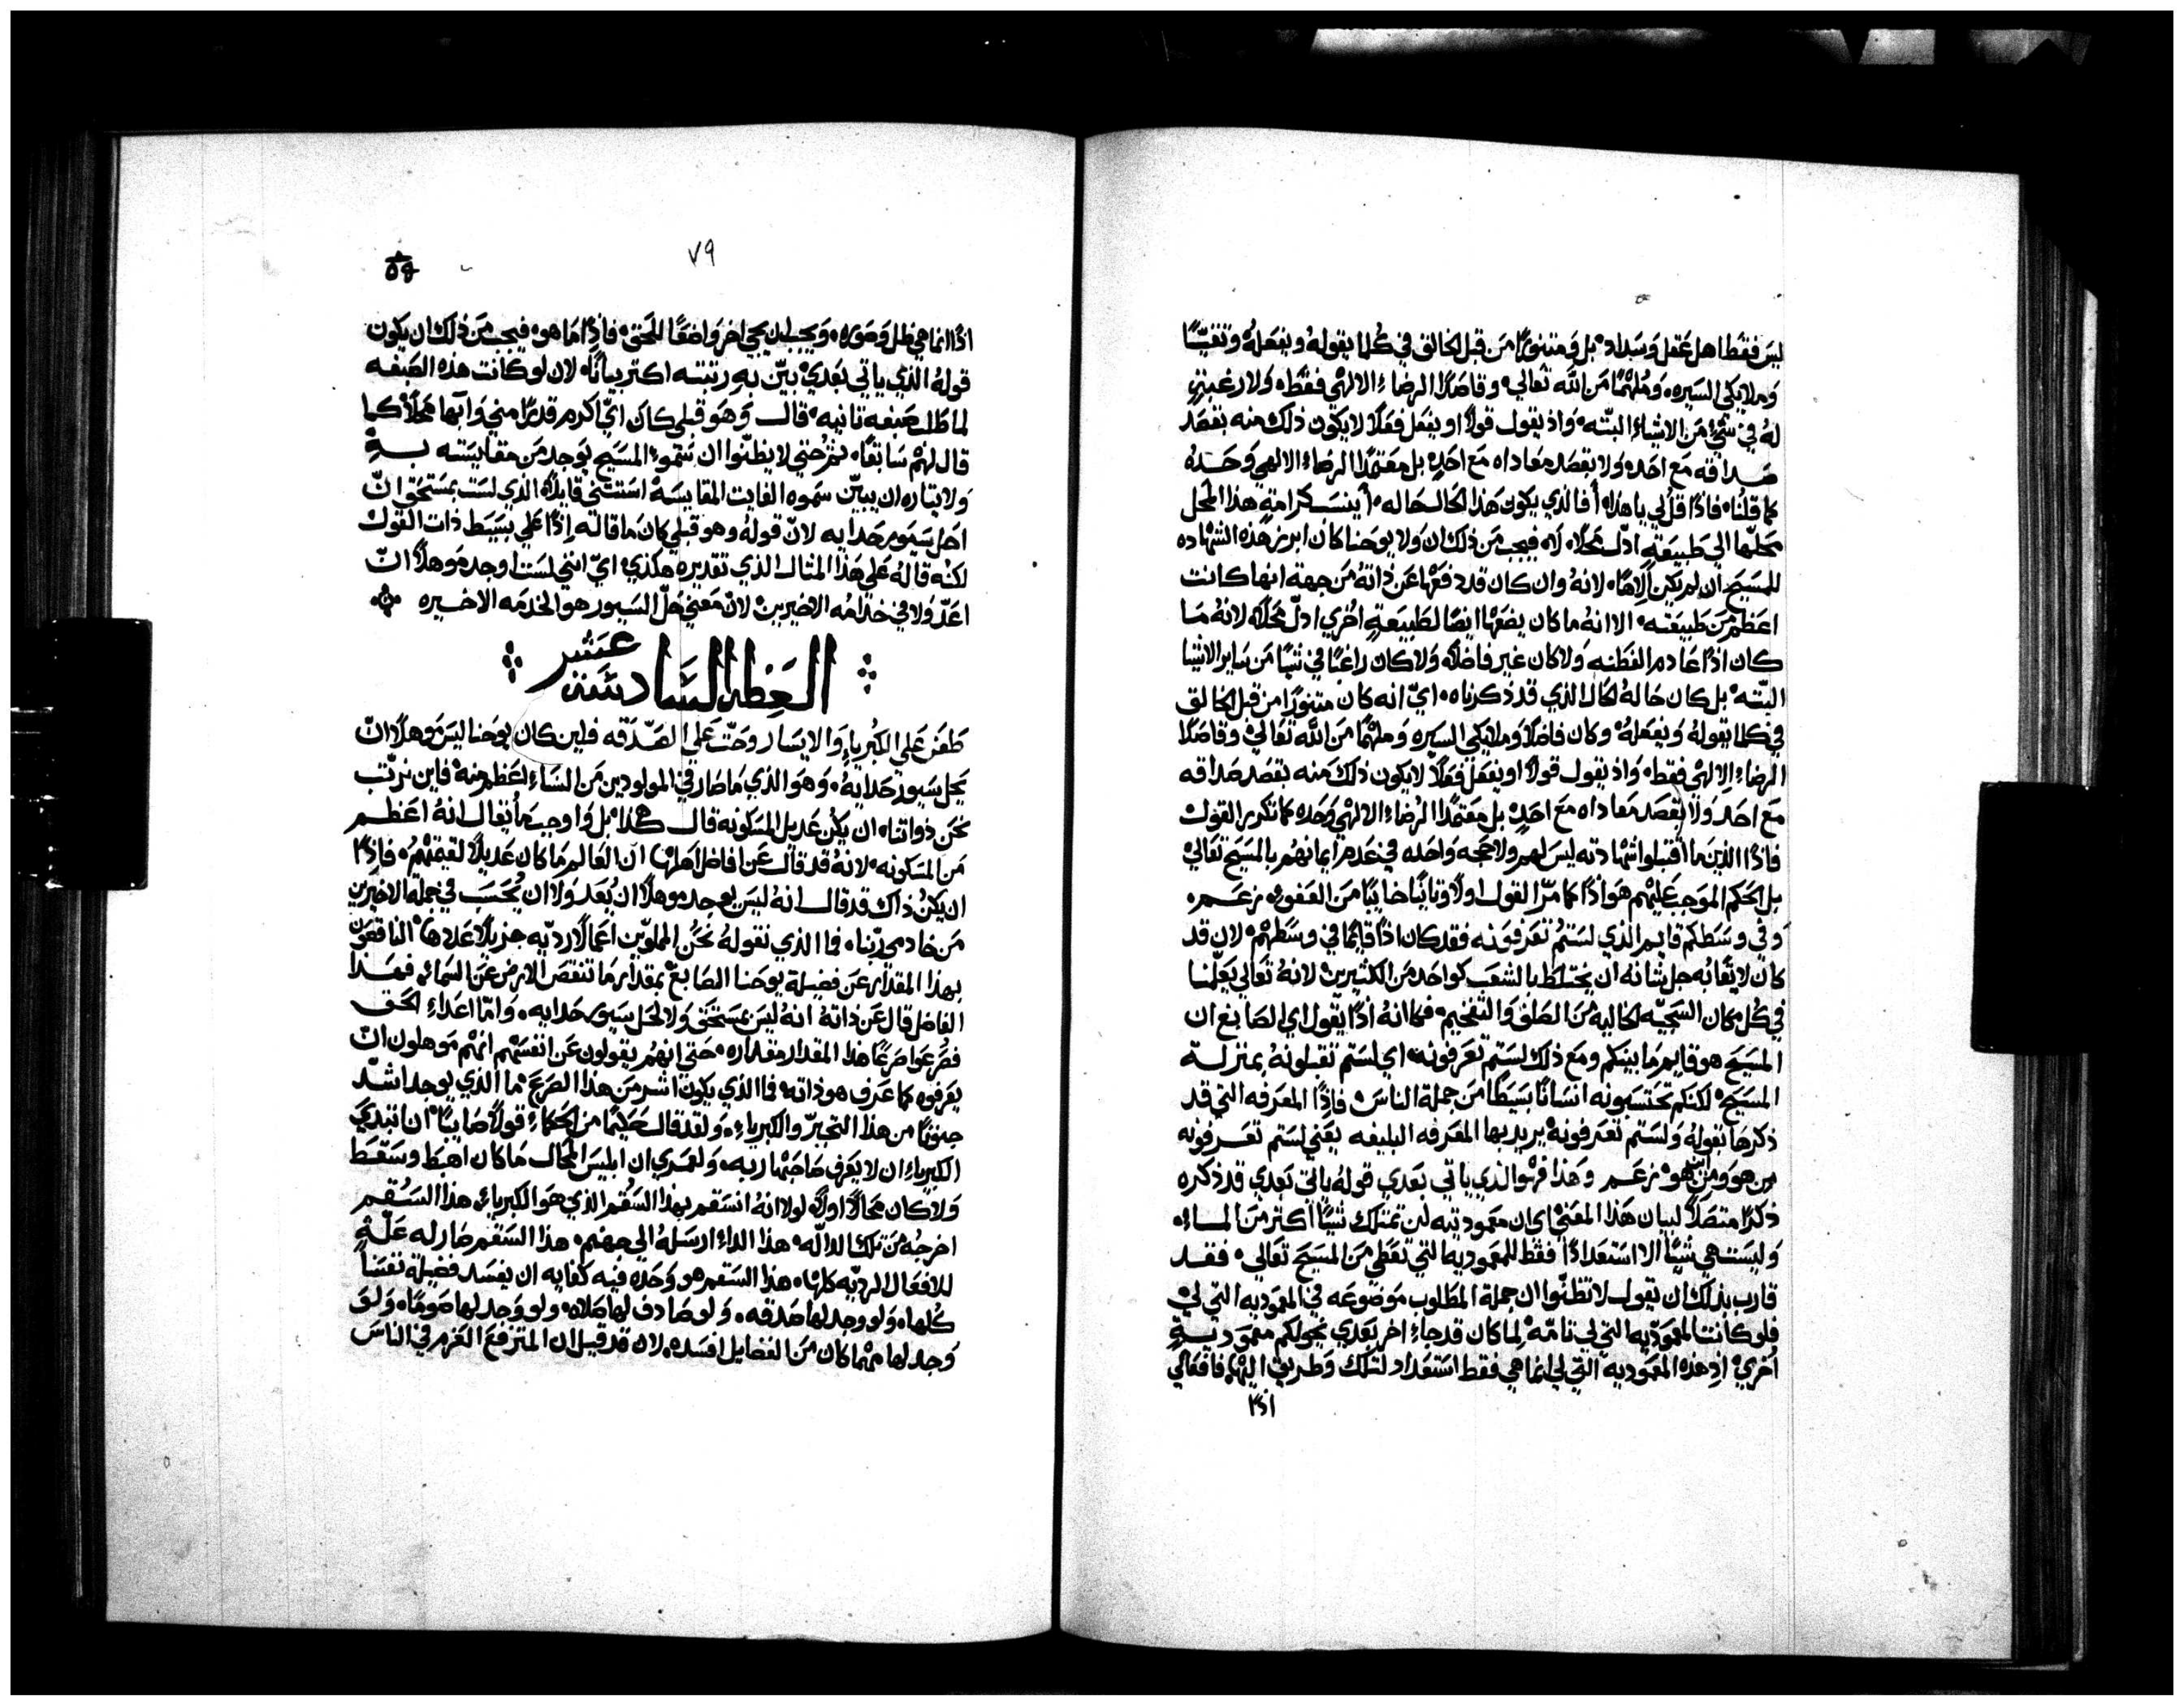 ليس فقط اهل عقل وسداد بل ومتنورًا من قبل الخالق في كلما يقوله ويفعله وتقيًّا
وملايكي السيره ومُلهمًا من الله تعالي وقاصدًا الرضاء الالهي فقط ولا رغبة
له في شيء من الاشياء البتّه واذ يقول قولًا او يفعل فعلًا لا يكون ذلك منه بقصد
صداقه مع احد ولا بقصد معاداه مع احدٍ بل معتمدًا الرضاء الالهي وحده
كما قلنا فاذًا قل لي يا هذا أفالذي يكون هذا الحال حاله أينسب كرامة هذا المحل
محلّها الي طبيعةٍ ادلّ محلًا له فيجب من ذلك ان ولا يوحنا كان ابرز هذه الشهاده
للمسيح ان لم يكن الاهًا لانه وان كان قد دفعها عن ذاته من جهة انها كانت
اعظم من طبيعته الا انه ما كان يضعها ايضًا لطبيعةٍ اخري ادلّ محلًا لانه ما
كان اذًا عادم الفطنه ولا كان غير فاضلًا ولا كان راغبًا في شيًا من ساير الاشيا
البتّه بل كان حاله الحال الذي قد ذكرناه ايّ انه كان متنورًا من قبل الخالق
في كلما يقوله ويفعله وكان فاضلًا وملايكي السيره وملهمًا من الله تعالي وقاصدًا
الرضاء الالهي فقط واذ يقول قولًا او يفعل فعلًا لا يكون ذلك منه بقصد صداقه
مع احد ولا بقصد معاداه مع احدٍ بل معتمدًا الرضاء الالهي وحده كما تكرر القول
فاذًا الذين ما اقتبلوا شهادته ليس لهم ولا حجه واحده في عدم ايمانهم بالمسيح تعالي
بل الحكم الموجب عليهم هو اذًا كما مرّ القول اولًا وثانيًا خايبًا من العفو زعم
وفي وسطكم قايم الذي لستم تعرفونه فقد كان اذًا قايمًا في وسطهم لان قد
كان لايقًا به جل شانه ان يختلط بالشعب كواحد من الكثيرين لانه تعالي يعلّمنا
في كل مكان السجيّه الخاليه من الصلف والتفخيم فكما انه اذًا يقول اي الصابغ ان
المسيح هو قايم ما بينكم ومع ذلك لستم تعرفونه اي لستم تقبلونه بمنزلة
المسيح لكنكم تحتسبونه انسانًا بسيطًا من جملة الناس فاذًا المعرفه التي قد
ذكرها بقوله ولستم تعرفونه يريد بها المعرفه البليغه يعني لستم تعرفونه
من هو ومن اين هو زعم وهذا فهو الذي ياتي بعدي قوله ياتي بعدي قد ذكره
ذكرًا متصلًا لبيان هذا المعني اي ان معموديته لن تمتلك شيًا اكثر من الماء
وليست هي شيًا الا استعدادًا فقط للمعموديه التي تعطي من المسيح تعالي فقد
قارب بذلك ان يقول لا تظنّوا ان جملة المطلوب موضوعه في المعموديه التي لي
فلو كانت المعموديه التي لي تامّه لما كان قد جاء اخر بعدي يخولكم معموديةٍ
اُخري اذ هذه المعموديه التي لي انما هي فقط استعداد لتلك وطريق اليها فافعالي
اذًا
٧٩
اذًا انما هي ظل وصوره ويجب ان يجي اخر واضعًا للحق فاذًا ما هو فيجب من ذلك ان يكون
قوله الذي ياتي بعدي بيّن به رتبته اكثر بيانًا لان لو كانت هذه الصبغه
لما طلب صبغه ثانيه قال وهو قبلي كان ايّ اكرم قدرًا مني وابها محلًا كما
قال لهم سابقًا ثم حتي لا يظنّوا ان سموّ المسيح يوجد من مقايسته به
ولايثاره ان يبيّن سموه الفايت المقايسه استثني قايلًا الذي لست بمستحق انّ
احل سيور حذايه لانّ قوله وهو قبلي كان ما قاله اذًا علي بسيط ذات القول
لكنه قاله علي هذا المثال الذي تقديره هكذي ايّ انني لست اوجد موهلًا انّ
اعدّ ولا في خدامه الاخيرين لان معني حلّ السيور هو الخدمه الاخيره
العظه السادسه عشر
طعن علي الكبرياء والايسار وحثّ علي الصدقه فلين كان يوحنا ليس موهلًا انّ
يحل سيور حذايه وهو الذي ما صار في المولودين من النساء اعظم منه فاين نرتّب
نحن ذواتنا ان يكن عديل المسكونه قال هكذا بل واوجب ما يقال انه اعظم
من المسكونه لانه قد قال عن افاضل اهلها ان العالم ما كان عديلًا لقيمتهم فاذًا
ان يكن ذاك قد قال انه ليس يوجد موهلًا ان يُعد ولا ان يُحسب في جملة الاخيرين
من خادمي ربنا فما الذي نقوله نحن المملوّين اعمالًا رديّه جزيلًا عددها الناقصون
بهذا المقدار عن فضيلة يوحنا الصابغ بمقدار ما تنقص الارض عن السماء فهذا
الفاضل قال عن ذاته انه ليس بمستحق ولا لحل سيور حذايه وامّا اعداء الحق
فصُرعوا صرعًا هذا المقدار مقداره حتي انهم يقولون عن انفسهم انهم موهلون انّ
يعرفوه كما عرف هو ذاته فما الذي يكون اشر من هذا الصرع ما الذي يوجد اشدّ
جنونًا من هذا التجبّر والكبرياء ولقد قال حكيمًا من الحكماء قولًا صايبًا ان ابتدي
الكبرياء ان لا يعرف صاحبها ربه ولعمري ان ابليس المحال ما كان اهبط وسقط
ولا كان محالًا اولًا لولا انه انسقم بهذا السُقم الذي هو الكبرياء هذا السُقم
اخرجه من تلك الدالّه هذا الداء ارسله الي جهنم هذا السقم صار له علّةٍ
للافعال الرديّه كلها هذا السقم هو وحده فيه كفايه ان يفسد فضيلة نفسًا
كلها ولو وجد لها صدقه ولو صادف لها صلاه ولو وجد لها صومًا ولو
وجد لها مهما كان من الفضايل افسده لان قد قيل ان المترفع العزم في الناس